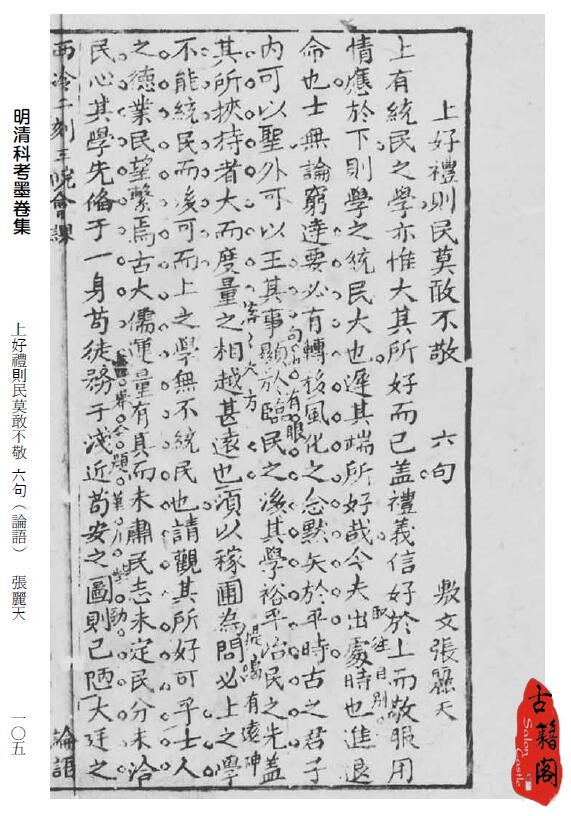 上好禮則民莫敢不敬 六句 敷文張麗天
上有統民之學亦惟大其所好而已蓋禮義信好於上而敬服用
情應於下則學之統民大也遲其端所好哉今夫出處時也進退
命也士無論窮達要必有轉移風化之念默矢於平時古之君子
內可以聖外可以王其事顯於臨民之後其學裕乎治民之先蓋
其所挾持者大而度量之相越甚遠也須以稼圃為問必上之學
不能統民而後可而上之學無不統民也請觀其所好可乎士人
之德業民望繫焉古大儒運量有真而未肅民志未定民分未洽
民心其學先俻于一身苟徒務于淺近苟安之圖則已陋大廷之
西泠二刻三院會課 論語
取徑自別
句句有眼
落落大方
提鳴有遠神
明清科考墨卷集
上好禮則民莫敢不敬 六句（論語） 張麗天
一〇五
古籍閣
Salon Castle